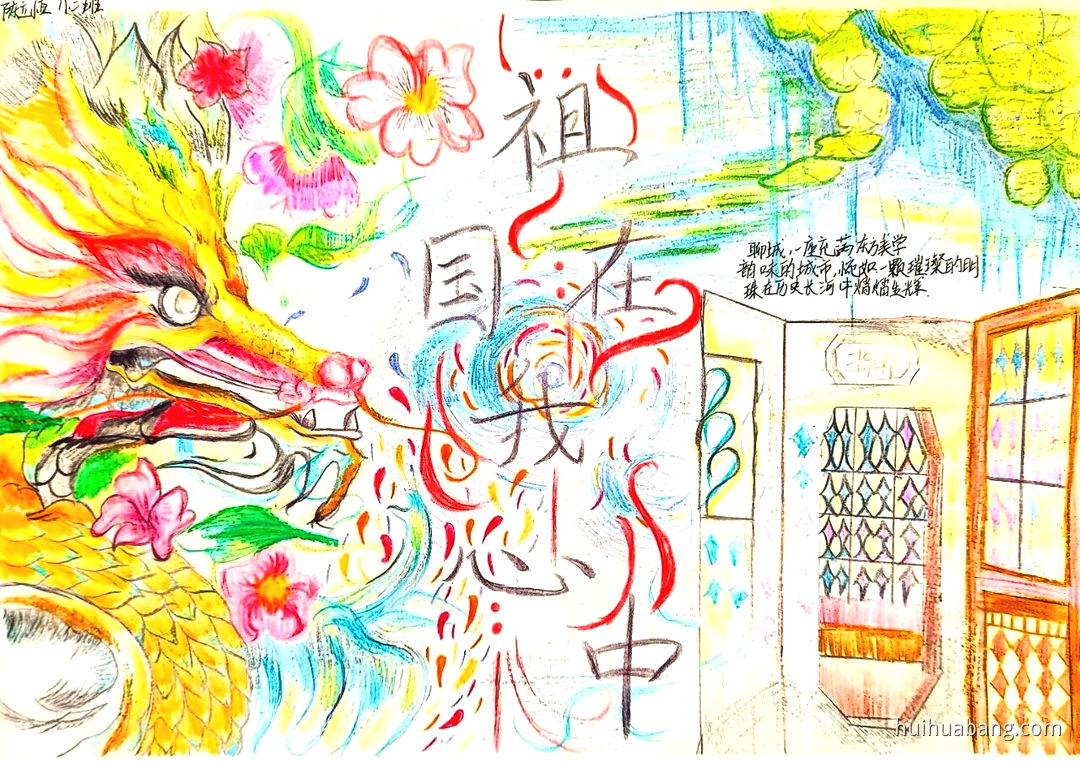 祖
国在
我
心
中
聊城，一座充满东方美学
韵味的城市，恍如一颗璀璨的明
珠在历史长河中熠熠生辉.
huihuabang.com